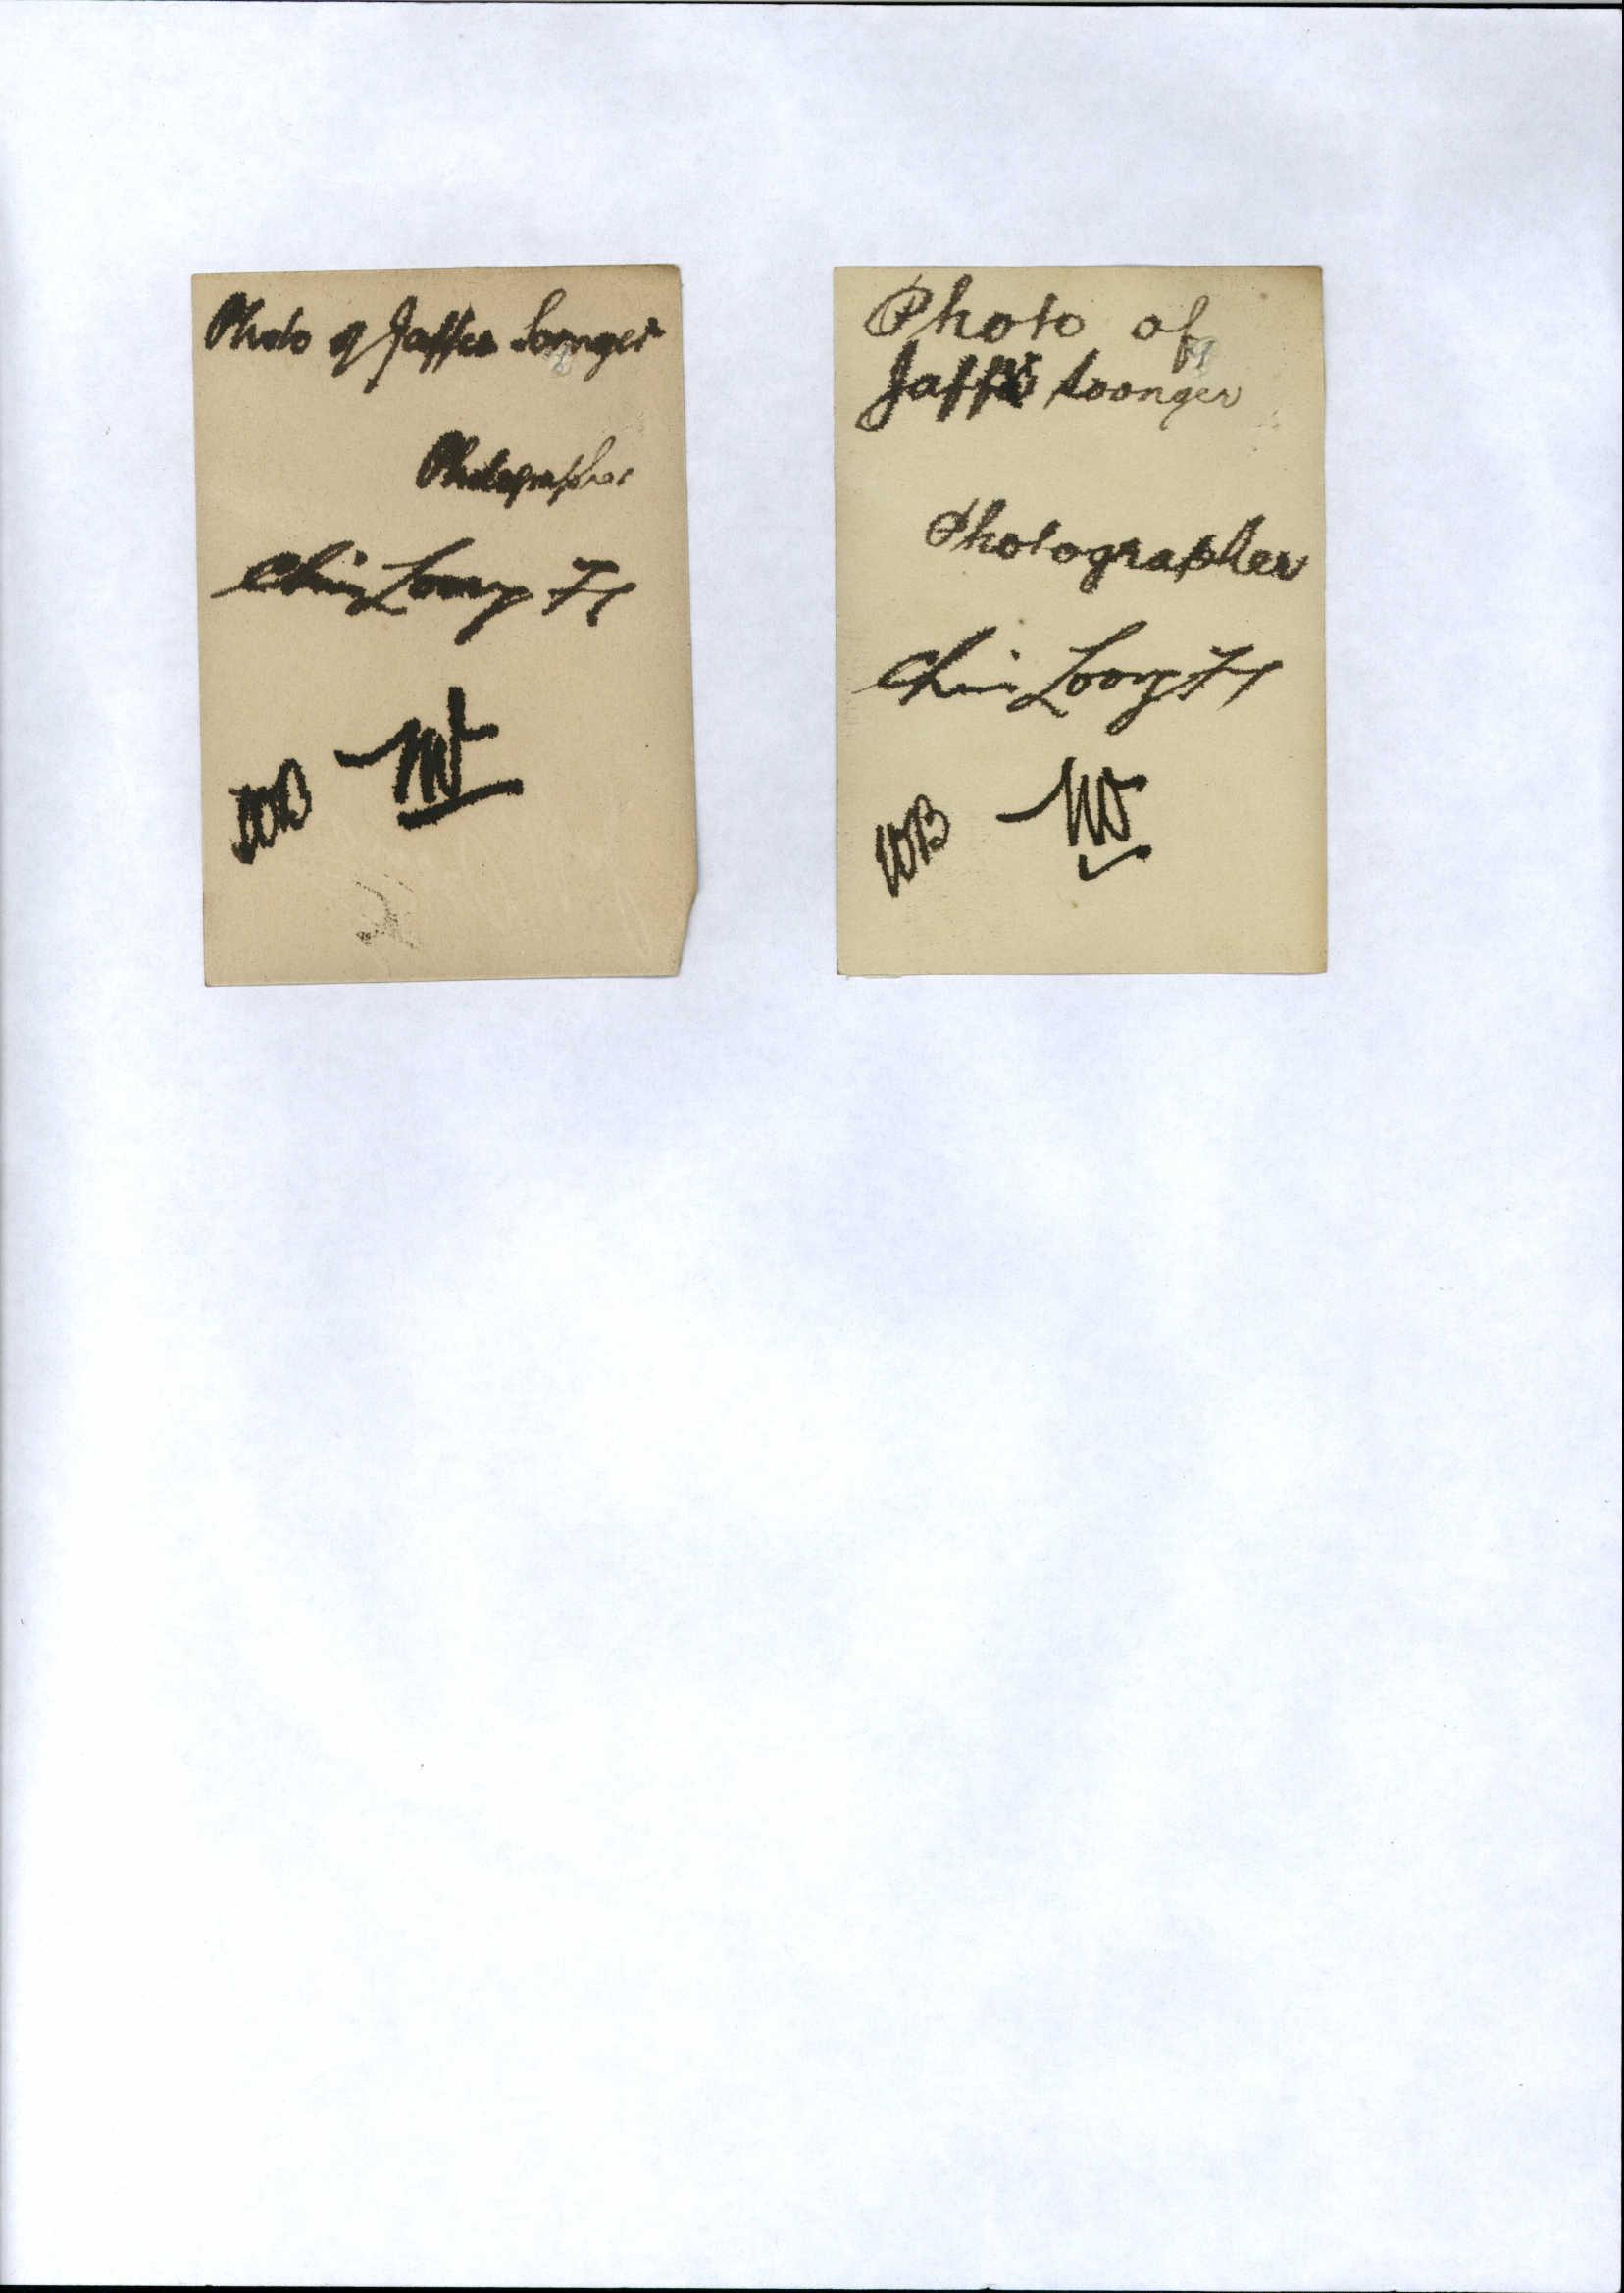 Photo of Jaffer Soonger
Photographer
Chin Loong
WB
Photo of
Soonger
Photographer
Chin Loong
WB